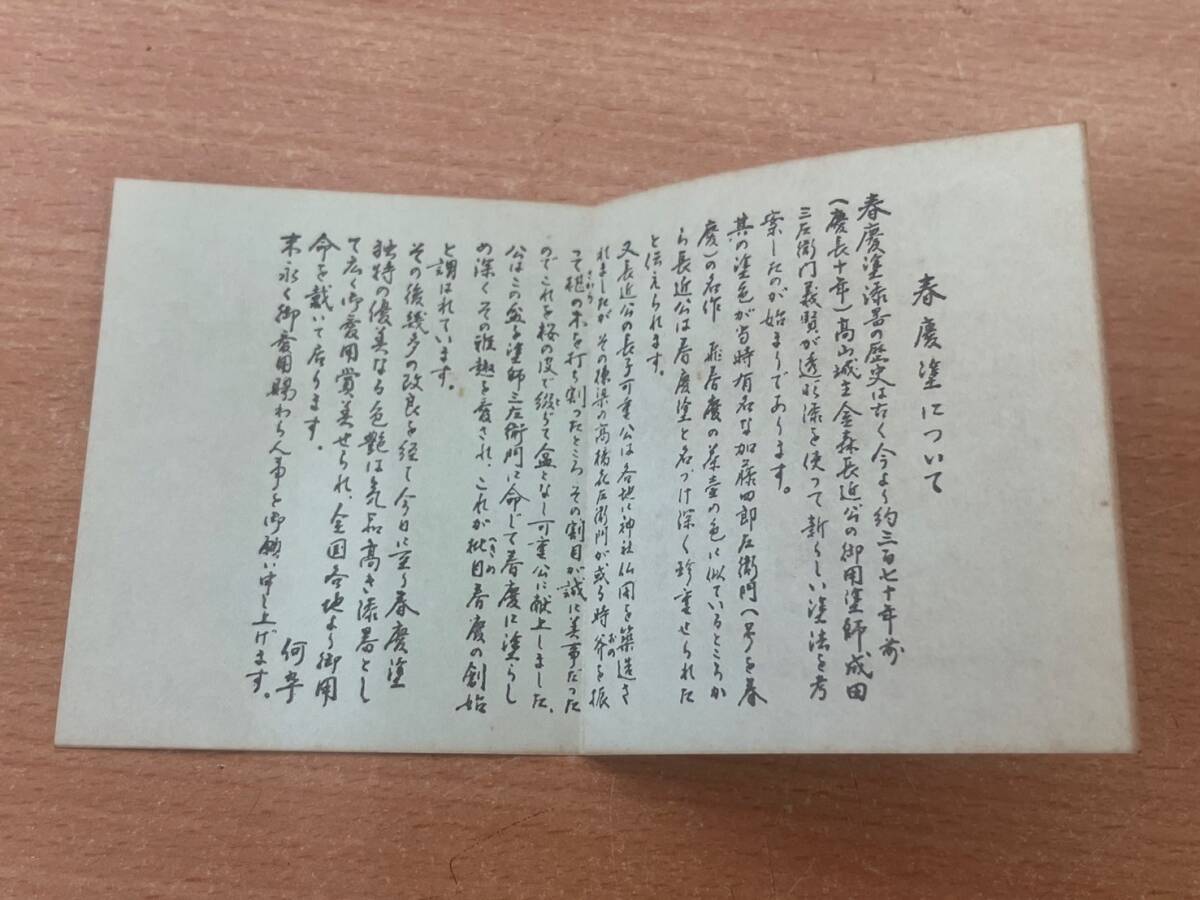 春慶塗について
春慶塗漆器の歴史は古く今より約三百七十年前
(慶長十年)高山城主金森長近公の御用塗師成田
三左衛門義賢が透ふ漆を使って新らしい塗法を考
案したのが始まりであります。
其の塗色が当時有名な加藤四郎左衛門(号を春
慶)の名作 飛春慶の茶壷の色に似ているところか
ら長近公は春慶塗と名づけ深く珍重せられた
と伝えられます。
又長近公の長子可重公は各地に神社仏閣を築造さ
れましたがその棟梁の高橋喜左衛門が或る時斧を振
って椹の木を打ち割ったところその割目が誠に美事だった
のでこれを桜の皮で綴って盆となし可重公に献上しました、
公はこの盆を塗師三左衛門に命じて春慶に塗らし
め深くその雅趣を愛され、これが批目春慶の創始
と謂はれています。
その後幾多の改良を経て今日に至り春慶塗
独特の優美なる色艶は気品高き漆器とし
て広く御愛用賞美せられ、全国各地より御用
命を戴いて居ります。
何卒
末永く御愛用賜わらん事を御願い申し上げます。